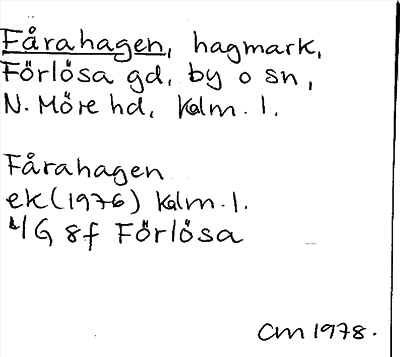 Fårahagen, hagmark,
Förlösa gd, by o sn,
N. Möre hd, Kalm. l.
Fårahagen
ek (1976) Kalm. l.
4G 8f Förlösa
CM 1978.